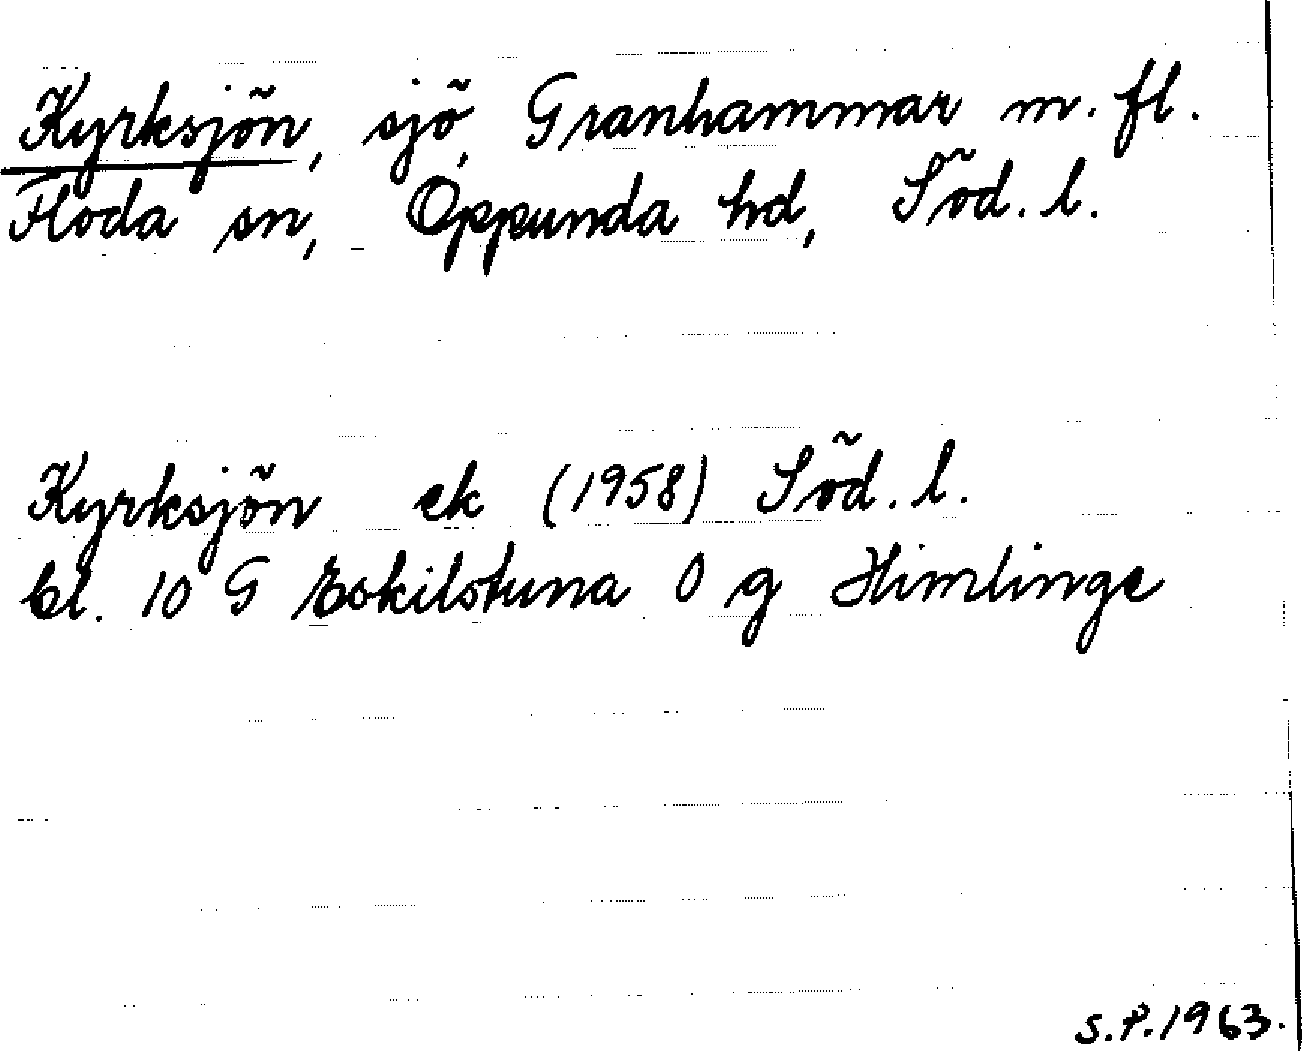 Kyrksjön, sjö, Granhammar m. fl.
Floda sn, Oppunda hd, Söd. l.
Kyrksjön ek (1958) Söd. l.
bl. 10 G Eskilstuna 0 g Himlinge
S.P. 1963.